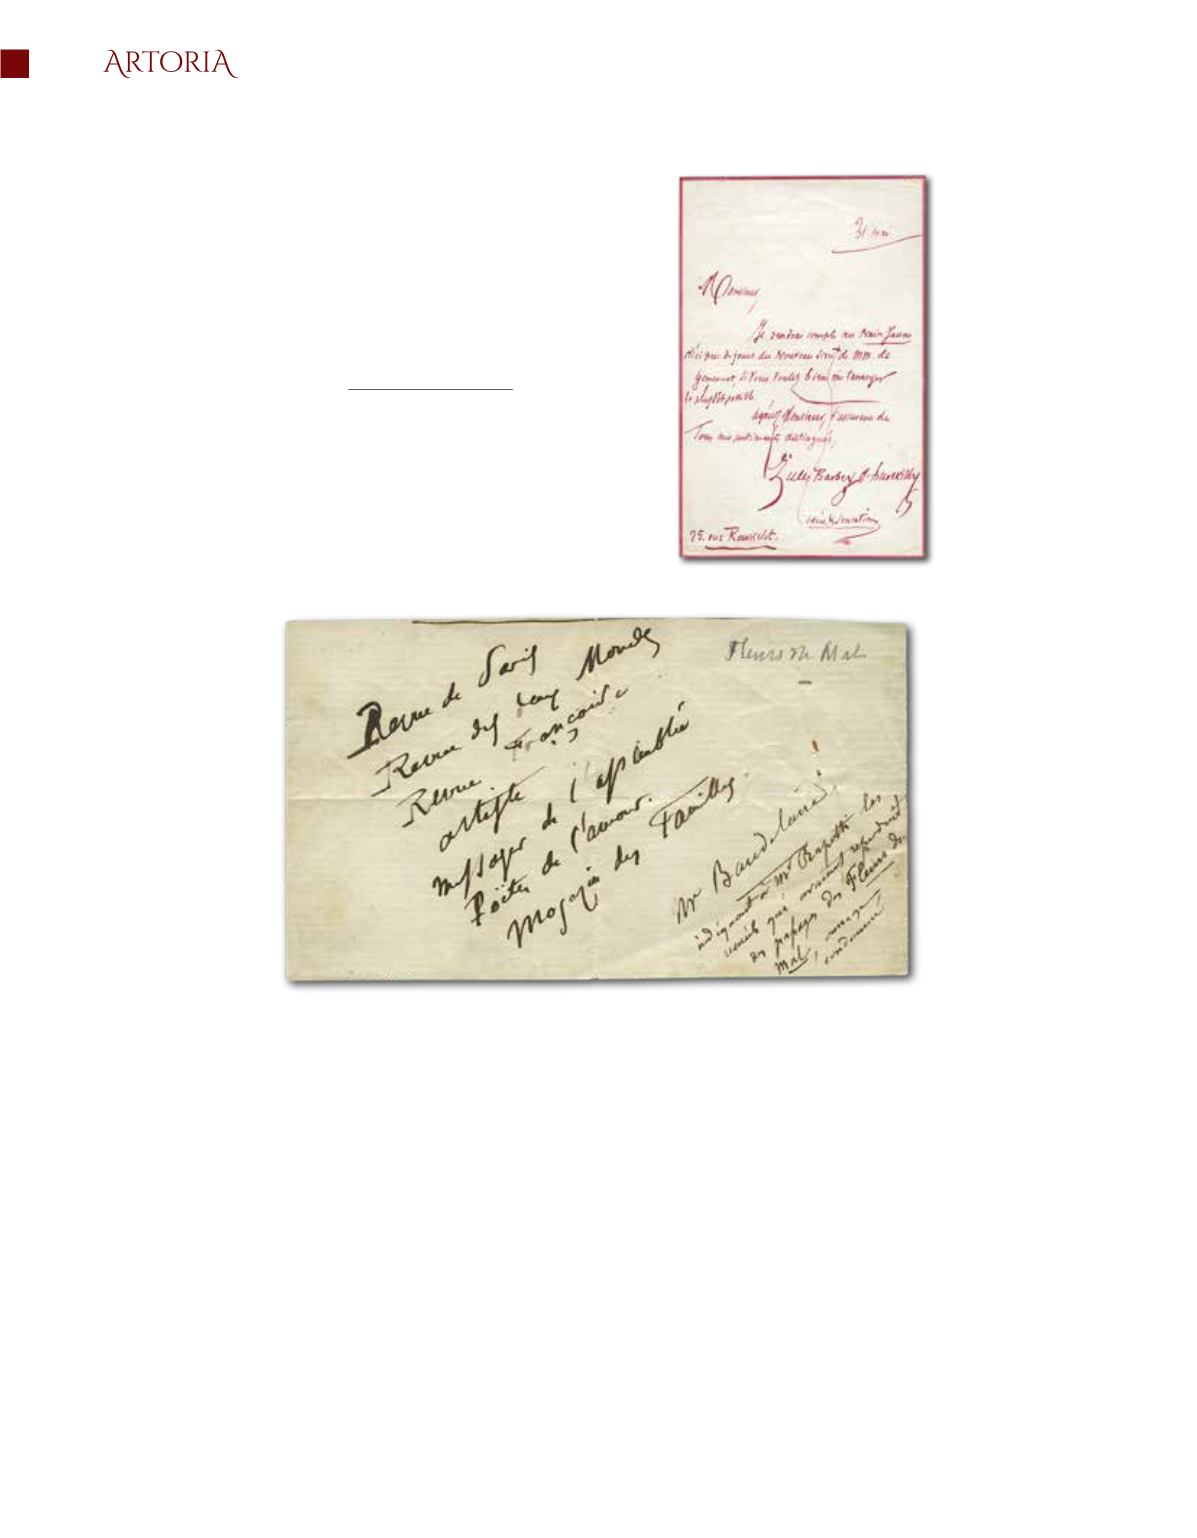 ARTORIA
31 mai
Monsieur,
Je rendrai compte au Nain Jaune
d'ici peu de jours du nouveau livre de MM. de
Goncourt, si vous voulez bien me l'envoyer
le plus tôt possible.
Agréez, Monsieur, l'assurance de
Tous mes sentiments distingués,
Jules Barbey d'Aurevilly
25. rue Rousselet.
Fleurs du Mal
Revue de Paris
Revue des deux Mondes
Revue Française
artiste
messager de l'assemblée
Poëtes de l'amour.
Magazin des Familles
Mr Baudelaire
indiquant à Mr Rapetti les
recueils qui avaient reproduit
des passages des Fleurs du
Mal, ouvrage
condamné